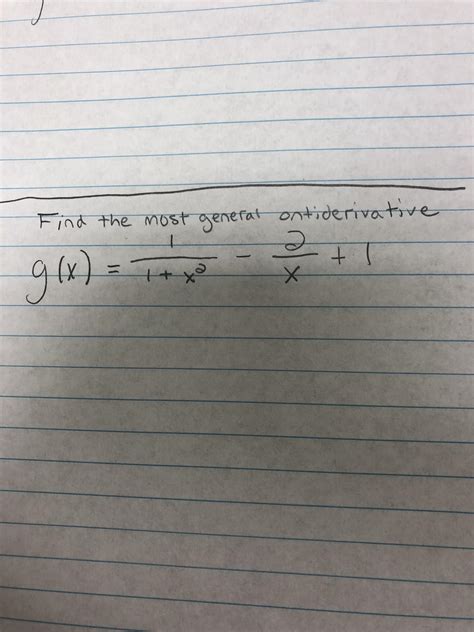 Find the most general ontiderivative
g(x) = 1/(1 + x²) - 2/x + 1